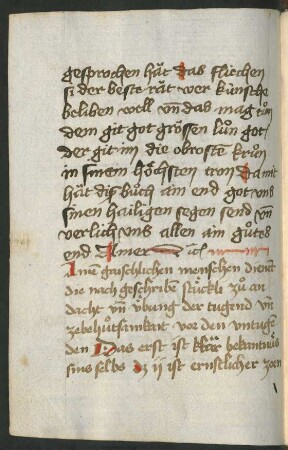 gesprochen hät das fliechen
si der beste rät wer künsche
beliben well vn̄ das mag tůn
dem git got grössen lůn got
der git im die obrosten krůn
in sinem höchsten tron Damit
hät dis bůch am end got vns
sinen hailigen segen send vn̄
verlich vns allen ain gůtes
end Amen
Ainem gaischlichen menschen dienent
die nach geschriben stückle zů an
dacht vn̄ übung der tugend vn̄
ze behůtsamkait vor den vntugen
den Das erst ist klär bekantnuß
sins selbs Dz ij ist ernstlicher zorn